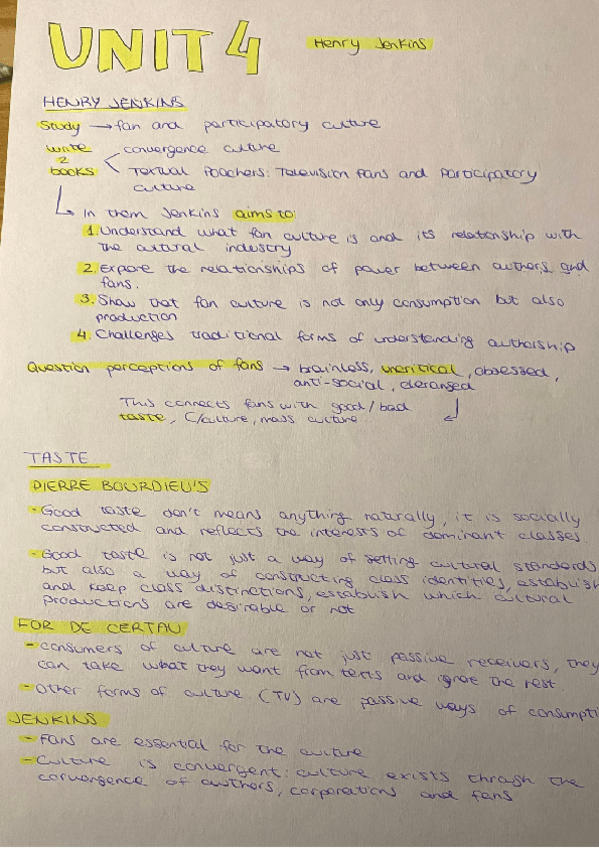 UNIT 4 Henry Jenkins
HENRY JENKINS
Study → fan and participatory culture
write convergence culture
2
books Textual Poachers: Television Fans and Participatory
culture
In them Jenkins aims to:
1. Understand what fan culture is and its relationship with
the cultural industry
2. Expore the relationships of power between authors and
fans.
3. Show that fan culture is not only consumption but also
production
4. Challenges traditional forms of understanding authorship
Question perceptions of fans → brainless, uncritical, obsessed,
anti-social, deranged
This connects fans with good/bad
taste, C/culture, mass culture
TASTE
PIERRE BOURDIEU'S
- Good taste don't means anything naturally, it is socially
constructed and reflects the interests of dominant classes
- Good taste is not just a way of setting cultural standards
but also a way of constructing class identities, establish
and keep class distinations, establish which cultural
productions are desirable or not
FOR DE CERTAU
- consumers of culture are not just passive receivers, they
can take what they want from texts and ignore the rest.
- Other forms of culture (TV) are passive ways of consumpti
JENKINS
- Fans are essential for the culture
- Culture is convergent: culture exists throgh the
convergence of authors, corporations and fans